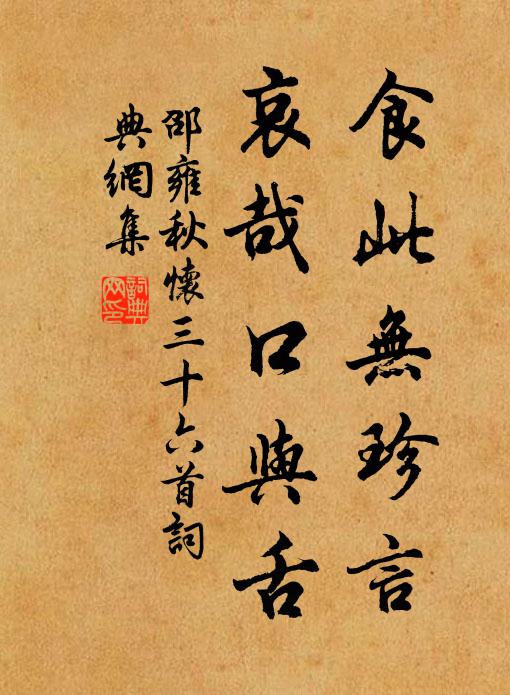 食此無珍言
哀哉口與舌
邵雍秋懷三十六首詞
典網集
詞典網印